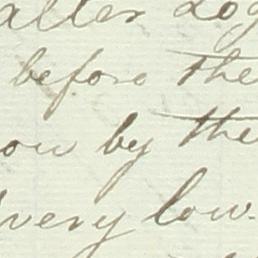 after
before the
ow by the
very low.